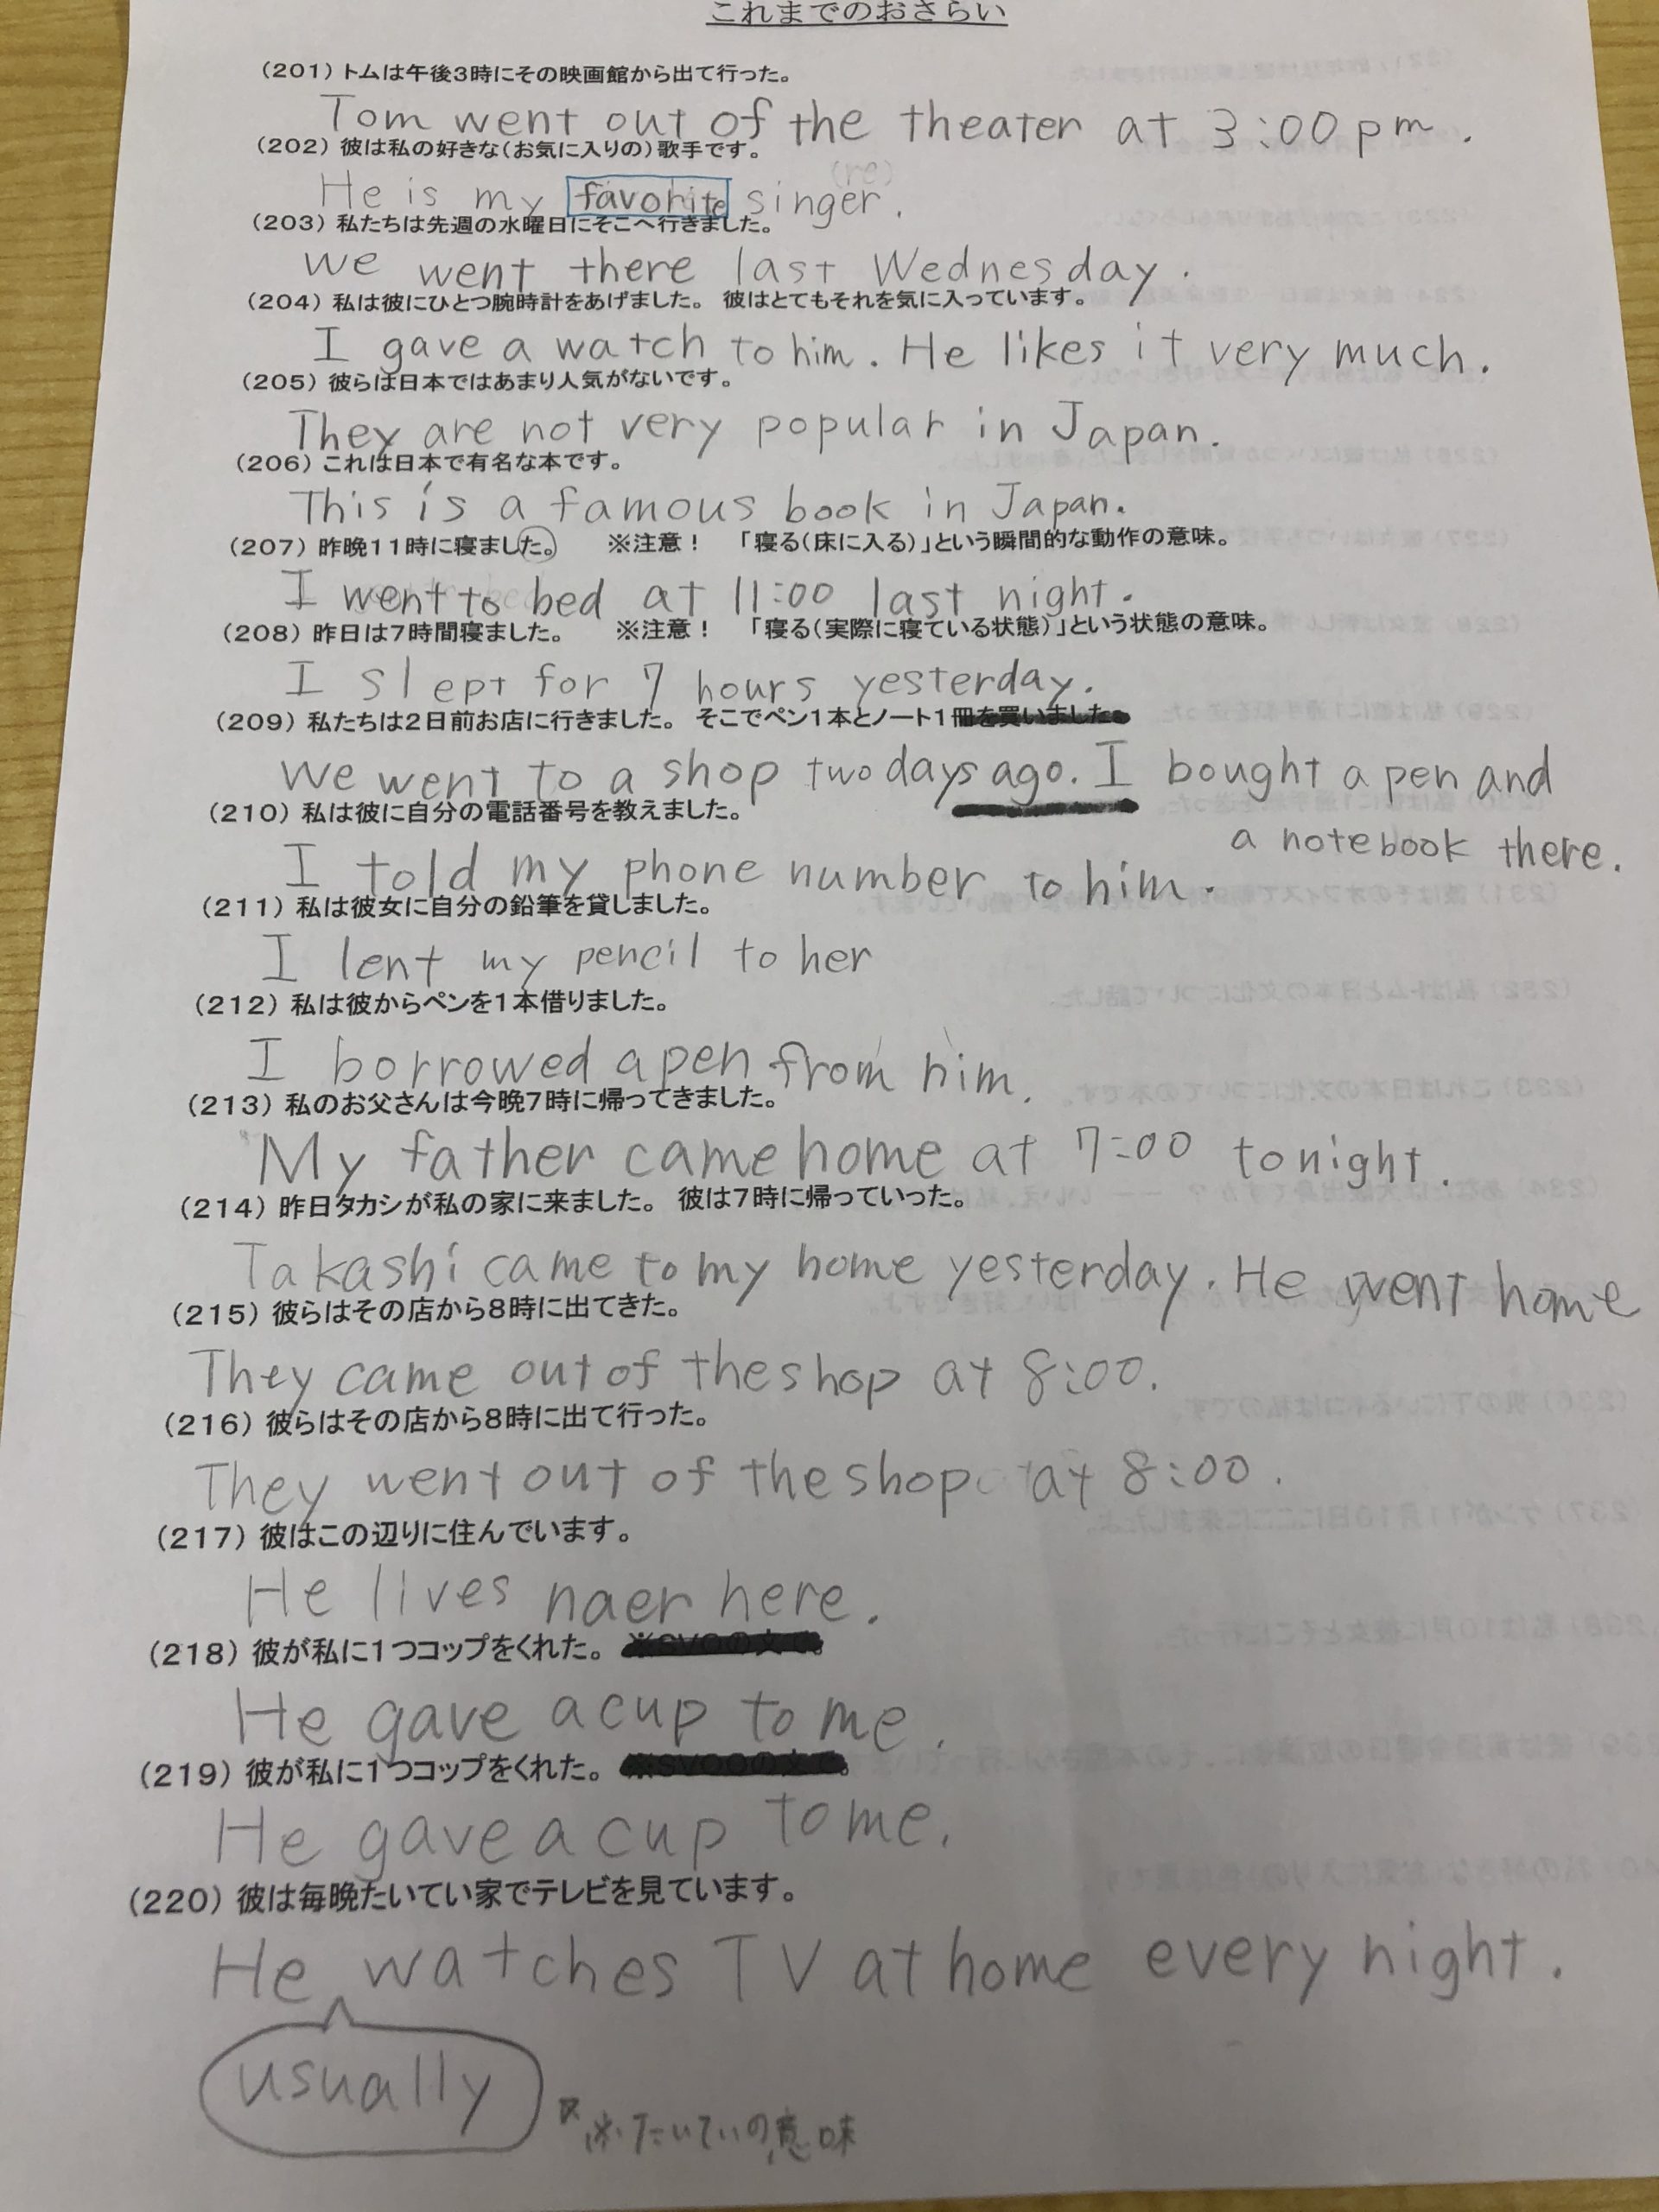 これまでのおさらい
(201) トムは午後3時にその映画館から出て行った。
Tom went out of the theater at 3:00 pm.
(202) 彼は私の好きな(お気に入りの)歌手です。
(re)
He is my favorite singer.
(203) 私たちは先週の水曜日にそこへ行きました。
We went there last Wednesday.
(204) 私は彼にひとつ腕時計をあげました。 彼はとてもそれを気に入っています。
I gave a watch to him. He likes it very much.
(205) 彼らは日本ではあまり人気がないです。
They are not very popular in Japan.
(206) これは日本で有名な本です。
This is a famous book in Japan.
(207) 昨晩11時に寝ました。 ※注意！ 「寝る(床に入る)」という瞬間的な動作の意味。
I went to bed at 11:00 last night.
(208) 昨日は7時間寝ました。 ※注意！ 「寝る(実際に寝ている状態)」という状態の意味。
I slept for 7 hours yesterday.
(209) 私たちは2日前お店に行きました。 そこでペン1本とノート1冊を買いました。
We went to a shop two days ago. I bought a pen and
(210) 私は彼に自分の電話番号を教えました。
a notebook there.
I told my phone number to him.
(211) 私は彼女に自分の鉛筆を貸しました。
I lent my pencil to her
(212) 私は彼からペンを1本借りました。
I borrowed a pen from him.
(213) 私のお父さんは今晩7時に帰ってきました。
My father came home at 7:00 tonight.
(214) 昨日タカシが私の家に来ました。 彼は7時に帰っていった。
Takashi came to my home yesterday. He went home
(215) 彼らはその店から8時に出てきた。
They came out of the shop at 8:00.
(216) 彼らはその店から8時に出て行った。
They went out of the shop at 8:00.
(217) 彼はこの辺りに住んでいます。
He lives naer here.
(218) 彼が私に1つコップをくれた。 ※SVOの文で。
He gave a cup to me.
(219) 彼が私に1つコップをくれた。 ※SVOOの文で。
He gave a cup to me.
(220) 彼は毎晩たいてい家でテレビを見ています。
He watches TV at home every night.
usually
※たいていの意味